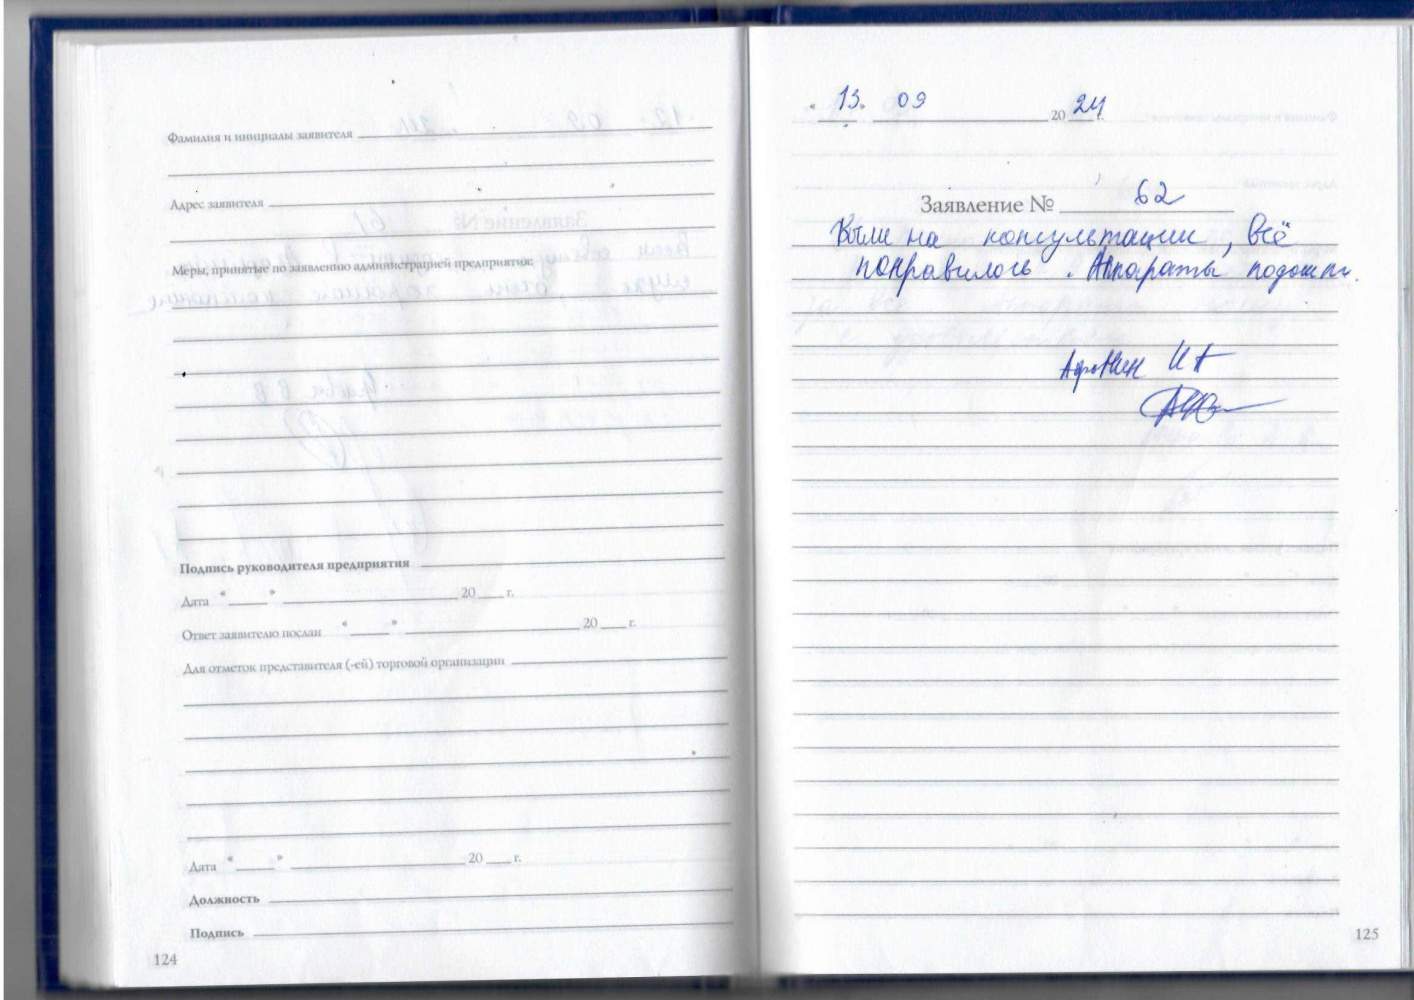 Фамилия и инициалы заявителя
Адрес заявителя
Меры, принятые по заявлению администрацией предприятия:
Подпись руководителя предприятия
Дата " " 20 г.
Ответ заявителю послан " " 20 г.
Для отметок представителя (-ей) торговой организации
Дата " " 20 г.
Должность
Подпись
124
"13" 09 2024 г.
Заявление № 62
Были на консультации, всё
понравилось. Аппараты подошли.
125